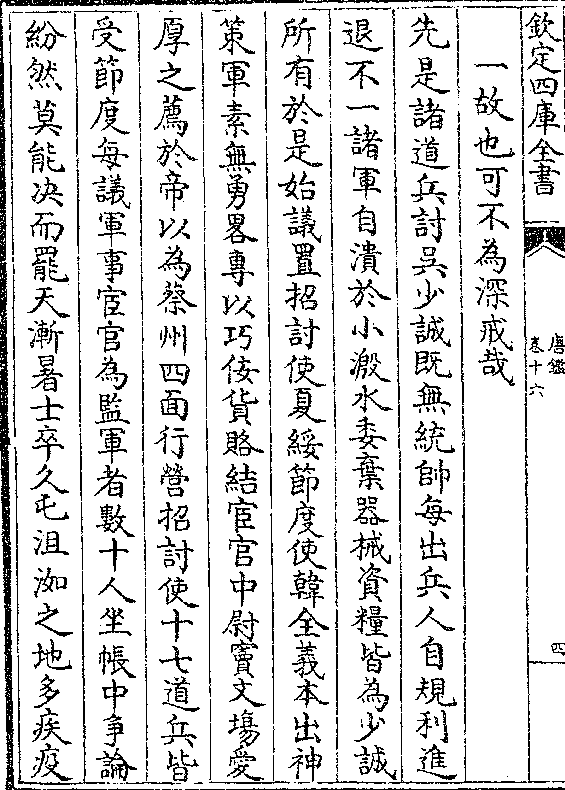 欽定四庫全書
唐鑑
卷十六
四
一故也可不為深戒哉
先是諸道兵討吳少誠既無統帥每出兵人自規利進
退不一諸軍自潰於小溵水委棄器械資糧皆為少誠
所有於是始議置招討使夏綏節度使韓全義本出神
策軍素無勇畧專以巧佞貨賂結宦官中尉竇文場愛
厚之薦於帝以為蔡州四面行營招討使十七道兵皆
受節度每議軍事宦官為監軍者數十人坐帳中爭論
紛然莫能决而罷天漸暑士卒久屯沮洳之地多疾疫